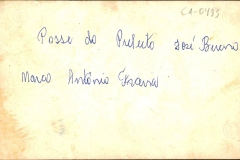 CA-0493
Posse do Prefeito José Bueno
Marco Antônio